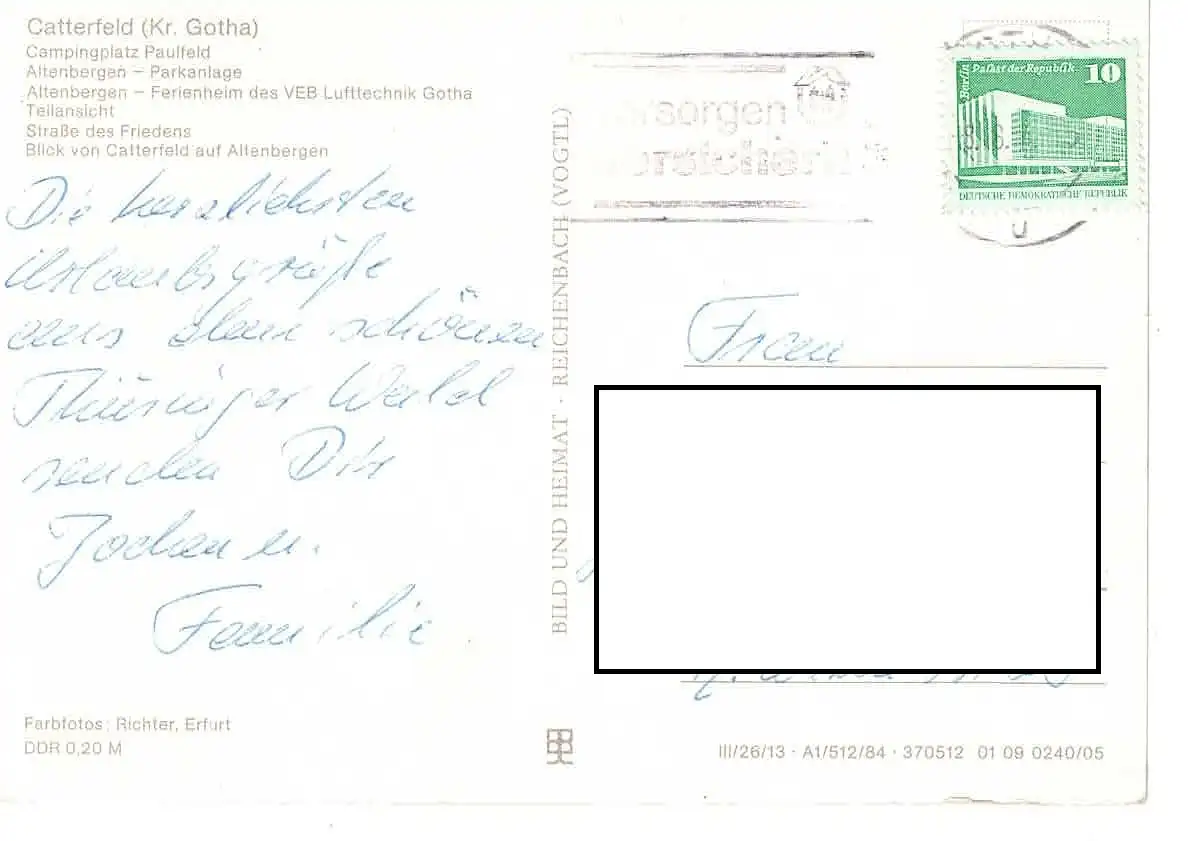 Catterfeld (Kr. Gotha)
Campingplatz Paulfeld
Altenbergen – Parkanlage
Altenbergen – Ferienheim des VEB Lufttechnik Gotha
Teilansicht
Straße des Friedens
Blick von Catterfeld auf Altenbergen
Die herzlichsten
Urlaubsgrüße
aus dem schönen
Thüringer Wald
senden Dir
Jochen u.
Familie.
Farbfotos: Richter, Erfurt
DDR 0,20 M
BILD UND HEIMAT · REICHENBACH (VOGTL)
sorgen
Berlin Palast der Republik 10
DEUTSCHE DEMOKRATISCHE REPUBLIK
U
Frau
III/26/13 · A1/512/84 · 370512 01 09 0240/05